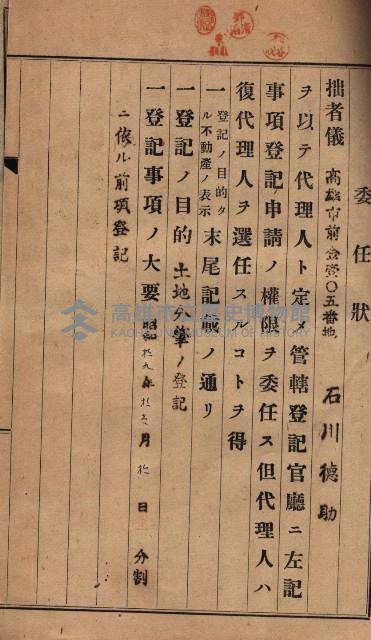 委任狀
拙者儀 高雄市前金壹〇五番地 石川德助
ヲ以テ代理人ト定メ管轄登記官廳ニ左記
事項登記申請ノ權限ヲ委任ス但代理人ハ
復代理人ヲ選任スルコトヲ得
一 登記ノ目的タル不動產ノ表示 末尾記載ノ通リ
一 登記ノ目的 土地分筆ノ登記
一 登記事項ノ大要 昭和拾九年拾 月 拾 日 分割
ニ依ル前項登記
高雄市立歷史博物館
KAOHSIUNG MUSEUM OF HISTORY